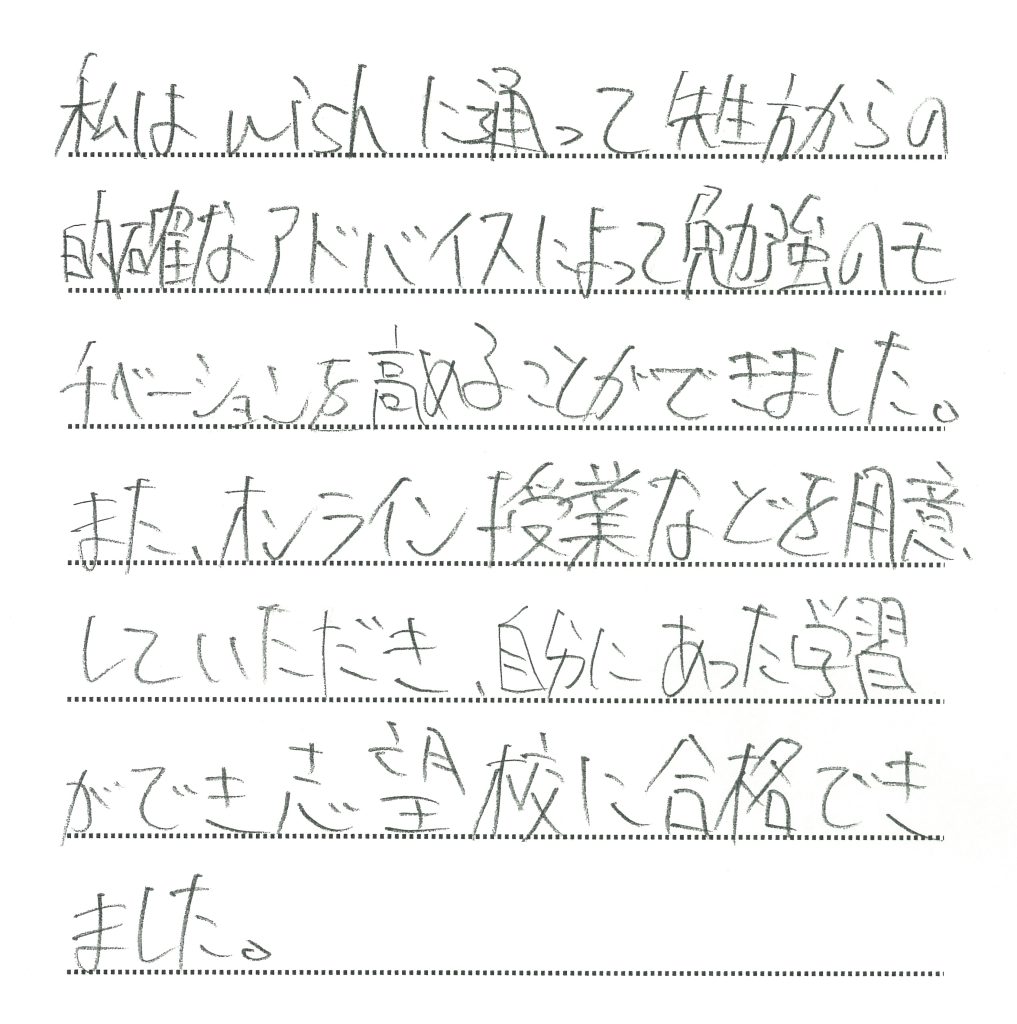 私は wish に通って先生方からの
的確なアドバイスによって勉強のモ
チベーションを高めることができました。
また、オンライン授業などを用意
していただき、自分にあった学習
ができ志望校に合格でき
ました。